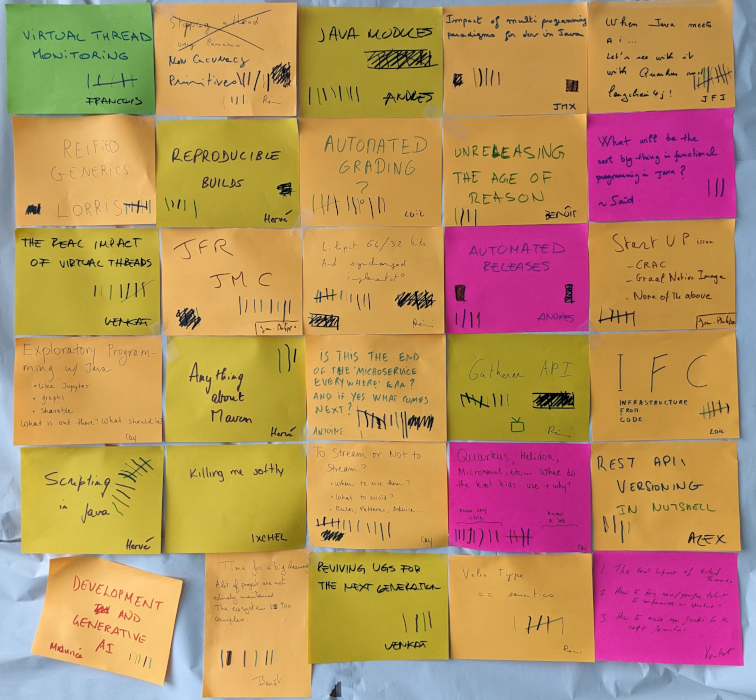 VIRTUAL THREAD
MONITORING
FRANCOIS
Panama
New
Primitives
JAVA MODULES
ANDRES
Impact of multi programming
paradigms for dev in Java
JMX
When Java meets
a i...
Let's see with it
with Quarkus
langchain4j!
JFJ
REIFIED
GENERICS
LORRIS
REPRODUCIBLE
BUILDS
Hervé
AUTOMATED
GRADING
?
Loïc
UNRELEASING
THE AGE OF
REASON
BENOÎT
What will be the
next big thing in functional
programming in Java?
~ Said
THE REAL IMPACT
OF VIRTUAL THREADS
VENKAT
JFR
JMC
Jean Philippe
Liliput 64/32 bits
And synchronized
AUTOMATED
RELEASES
ANDRES
Start UP
- CRAC
- Graal Native Image
- None of the above
Jean Philippe
Exploratory Program-
ming w/ Java
• Like Jupyter
• graphs
• Sharable
What is out there? What should be?
Cay
Anything
about
Maven
Hervé
IS THIS THE END
OF THE "MICROSERVICE
EVERYWHERE" ERA?
AND IF YES WHAT COMES
NEXT?
ANTOINE
Gatherer API
IFC
INFRASTRUCTURE
FROM
CODE
Loïc
Scripting
in Java
Hervé
Killing me softly
IXCHEL
To Stream or Not to
Stream?
• When to use them?
• What to avoid?
• Rules, Patterns, Advice
Cay
Quarkus, Helidon,
Micronaut, etc... What do
the kool kids use + why?
know very
little
know
a lot
REST API:
VERSIONING
IN NUTSHELL
ALEX
DEVELOPMENT
AND
GENERATIVE
AI
Maurice
Time for a big
A lot of project are not
actively maintained
The ecosystem is too
complex
Benoît
REVIVING UGS FOR
THE NEXT GENERATION
VENKAT
Value Type
== semantics
1. The real impact of Virtual
Threads
2. How to
3. How to
Venkat